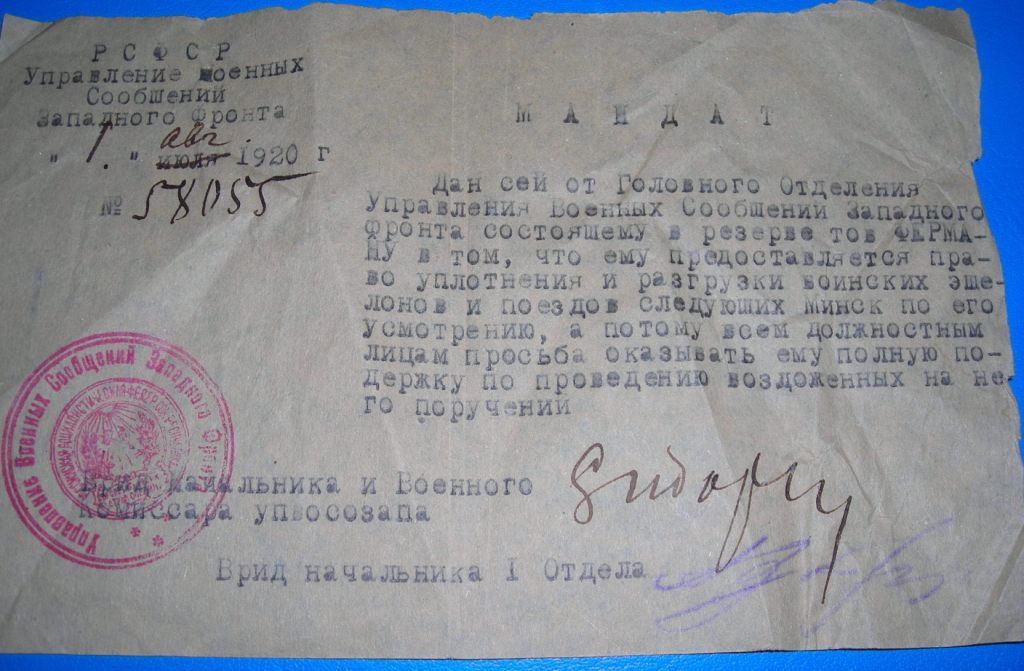 Р С Ф С Р
Управление военных
Сообшений
Западного Фронта
" 1. " авг. июля 1920 г
№ 58055
М А Н Д А Т
Дан сей от Головного Отделения
Управления Военных Сообшении Западного
фронта состояшему в резерве тов ФЕРМА-
НУ в том, что ему предоставляется пра-
во уплотнения и разгрузки воинских эше-
лонов и поездов следуюших Минск по его
усмотрению, а потому всем должностным
лицам просьба оказывать ему полную по-
держку по проведению возложенных на не-
го поручении
Управление Военных Сообщений Западного Фронта
Врид начальника и Военного
Комиссара упвосозапа
Врид начальника I Отдела